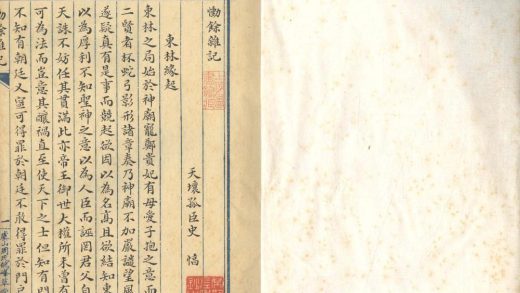 慟餘雜記
天壤孤臣史 惇
東林緣起
東林之局始於神廟寵鄭貴妃有母愛子抱之意而
二賢者杯蛇弓影形諸章奏乃神廟不加嚴譴望風
遂疑真有是事而競起欲因以為名高且欲結知東
以為厚利不知聖神之意以為人臣而誣罔君父自
天誅不妨任其貫滿此亦帝王御世大權所未曾有
可為法而豈意其釀禍直至使天下之士但知有門
不知有朝廷又寧可得罪於朝廷不敢得罪於門戶
慟餘雜記
一